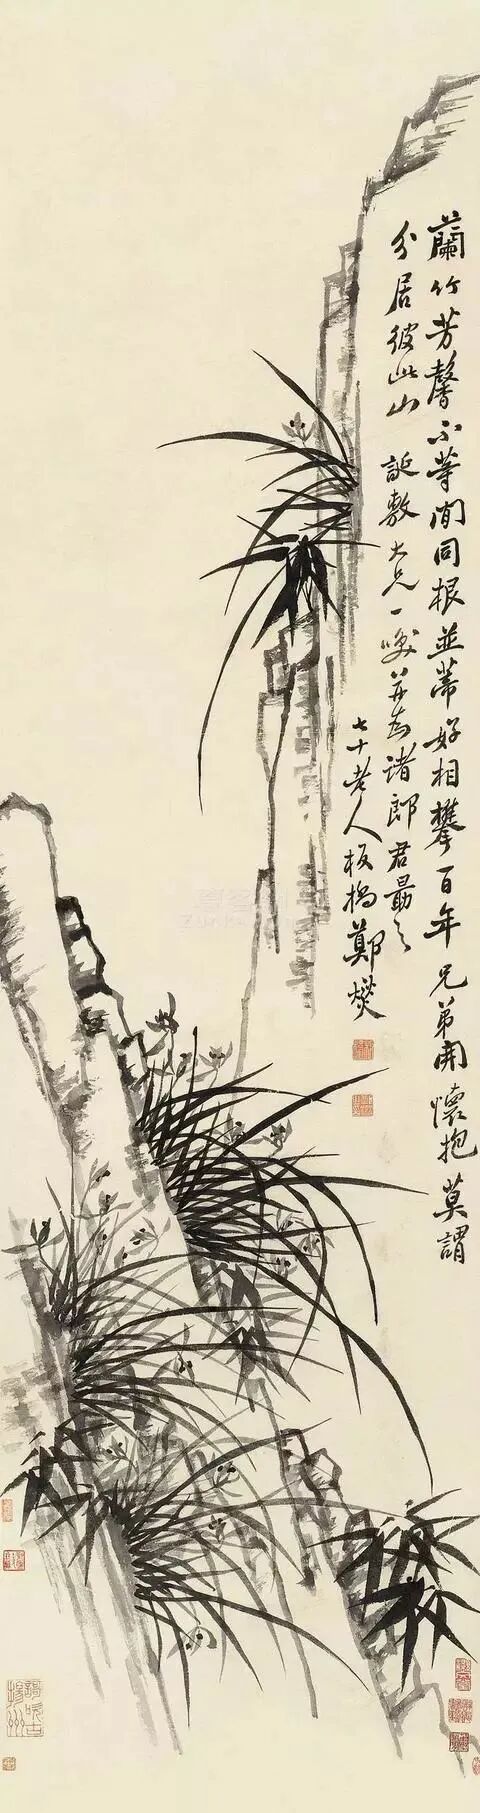 蘭竹芳馨不等閒同根並蒂好相攀百年兄弟開懷抱莫謂
分居彼此山　誕敷大兄一咲并為諸郎君勗之
七十老人板橋鄭燮